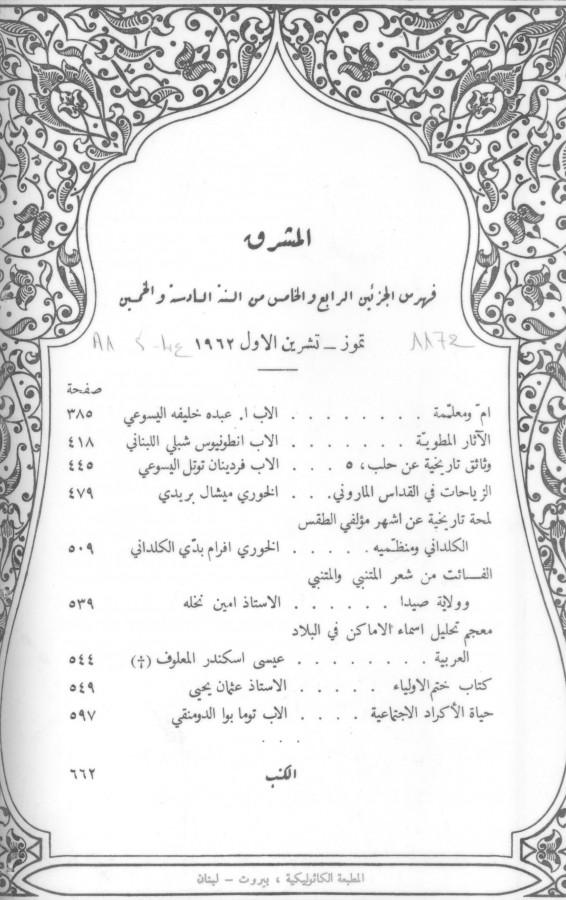 المشرق
فهرس الجزئين الرابع والخامس من السنة السادسة والخمسين
تموز – تشرين الاول ١٩٦٢
صفحة
امّ ومعلّمة . . . . . . . . الاب ا. عبده خليفه اليسوعي ٣٨٥
الآثار المطويّة . . . . . . . الاب انطونيوس شبلي اللبناني ٤١٨
وثائق تاريخية عن حلب، ٥ . . . الاب فردينان توتل اليسوعي ٤٤٥
الزياحات في القداس الماروني. . . الخوري ميشال بريدي ٤٧٩
لمحة تاريخية عن اشهر مؤلفي الطقس
الكلداني ومنظّميه . . . . . الخوري افرام بدّي الكلداني ٥٠٩
الفسائت من شعر المتنبي والمتنبي
وولاية صيدا . . . . . . الاستاذ امين نخله ٥٣٩
معجم تحليل اسماء الاماكن في البلاد
العربية . . . . . . . . عيسى اسكندر المعلوف (†) ٥٤٤
كتاب ختم الاولياء . . . . . الاستاذ عثمان يحيى ٥٤٩
حياة الأكراد الاجتماعية . . . . الاب توما بوا الدومنقي ٥٩٧
. . .
الكتب ٦٦٢
المطبعة الكاثوليكية ، بيروت – لبنان